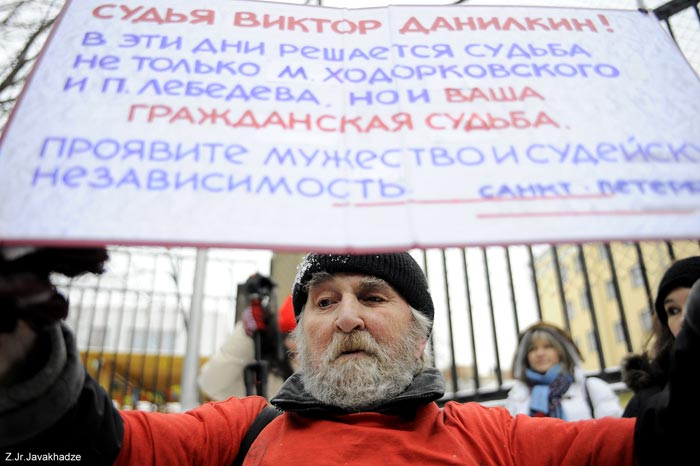 Судья Виктор Данилкин!
В эти дни решается судьба
не только М. Ходорковского
и П. Лебедева, но и ваша
гражданская судьба.
Проявите мужество и судейску
независимость. Санкт-Петер
Z.Jr.Javakhadze